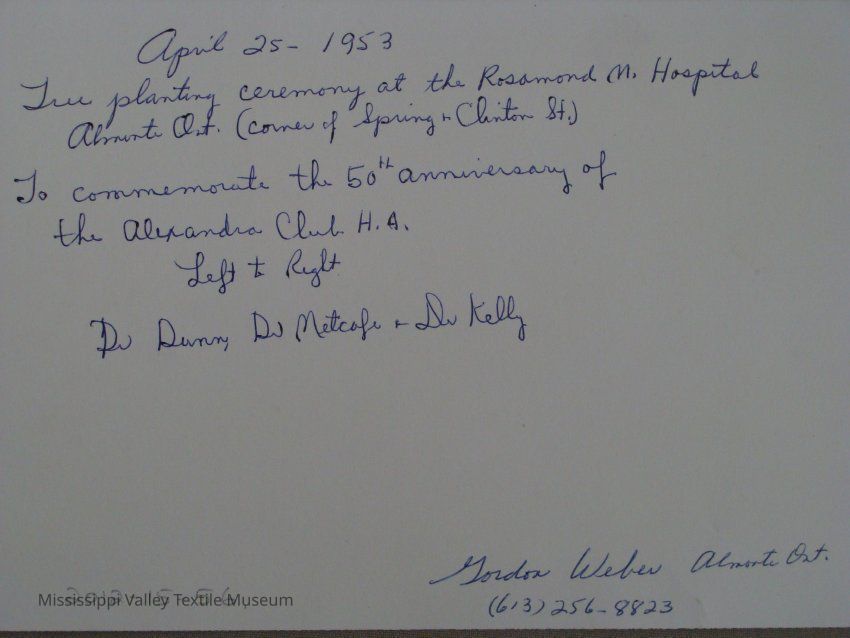 April 25- 1953
Tree planting ceremony at the Rosamond M. Hospital
Almonte Ont. (corner of Spring + Clinton St.)
To commemorate the 50th anniversary of
the Alexandra Club H.A.
Left to Right
Dr Dunn, Dr Metcafe + Dr Kelly
Gordon Weber Almonte Ont.
(613) 256-8823
Mississippi Valley Textile Museum